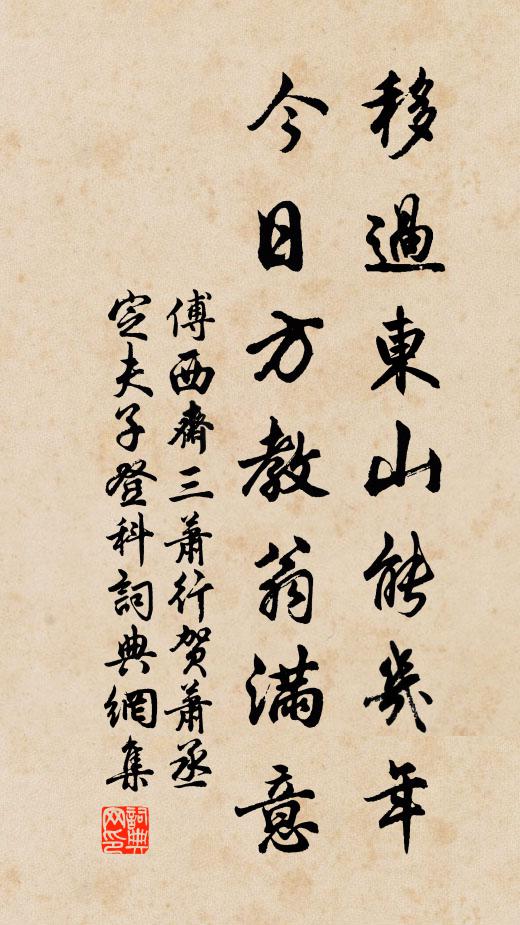 移過東山能幾年
今日方教翁滿意
傅西齋三蕭行賀蕭丞
定夫子登科詞典網集
詞典网印